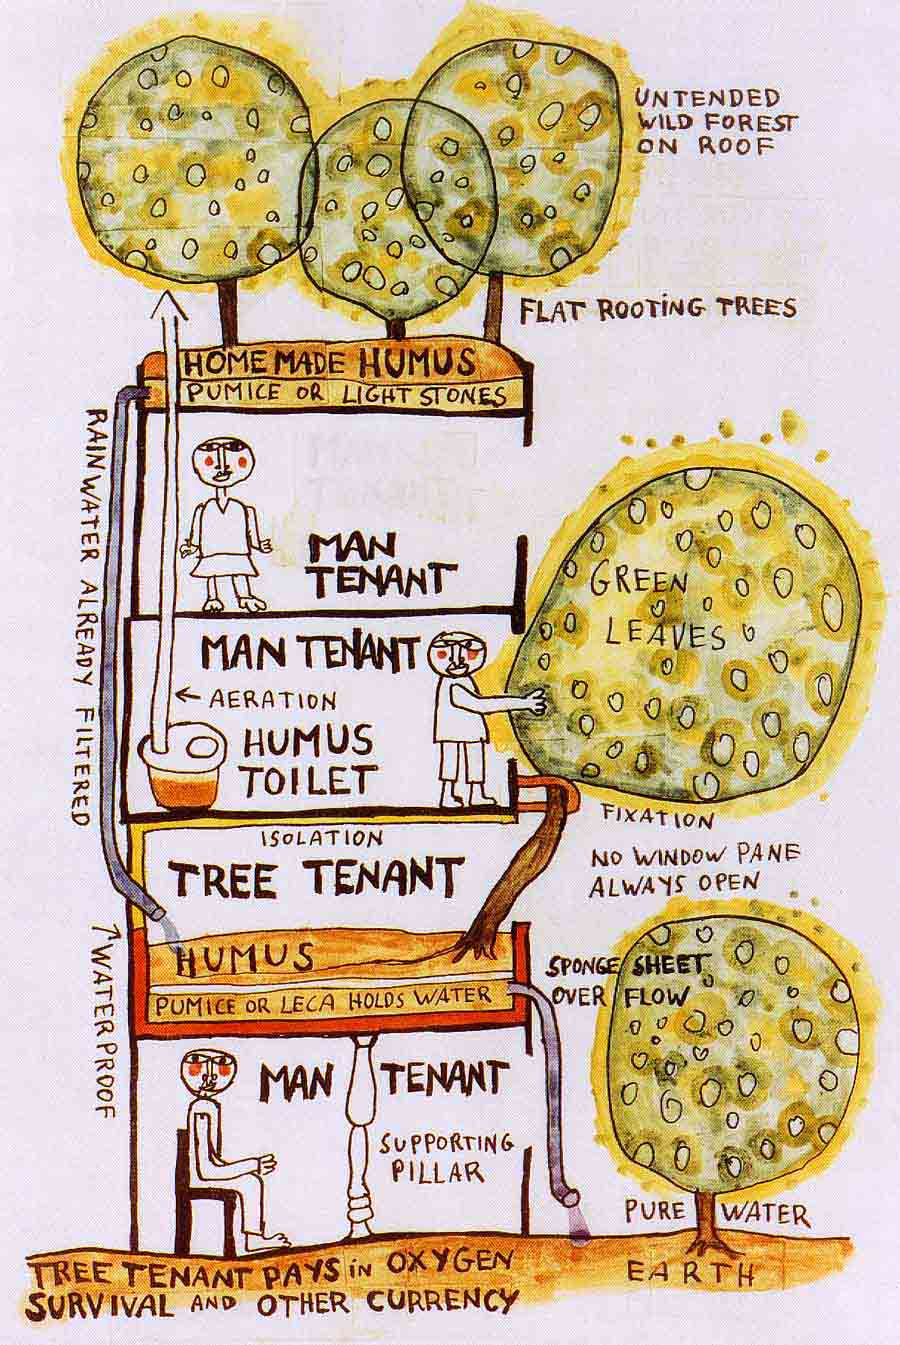 UNTENDED
WILD FOREST
ON ROOF
FLAT ROOTING TREES
HOME MADE HUMUS
PUMICE OR LIGHT STONES
RAINWATER ALREADY FILTERED
MAN
TENANT
GREEN
LEAVES
MAN TENANT
← AERATION
HUMUS
TOILET
FIXATION
ISOLATION
TREE TENANT
NO WINDOW PANE
ALWAYS OPEN
HUMUS
PUMICE OR LECA HOLDS WATER
SPONGE SHEET
OVER FLOW
WATERPROOF
MAN TENANT
SUPPORTING
PILLAR
PURE WATER
EARTH
TREE TENANT PAYS in OXYGEN
SURVIVAL AND OTHER CURRENCY